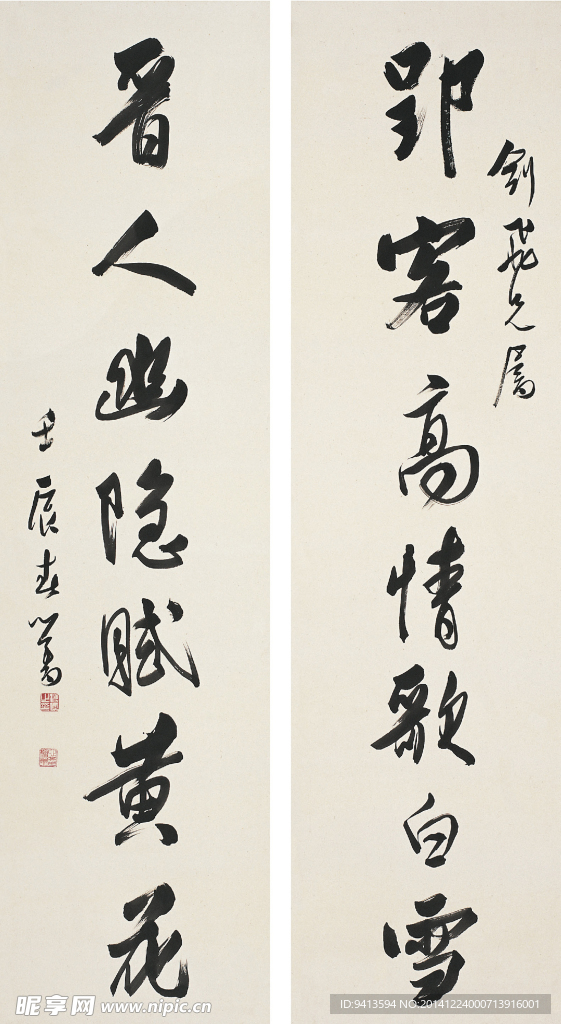 郢客高情歌白雪
剑飞兄属
晋人幽隐赋黄花
壬辰春 心畬
昵享网 www.nipic.cn
ID:9413594 NO:20141224000713916001